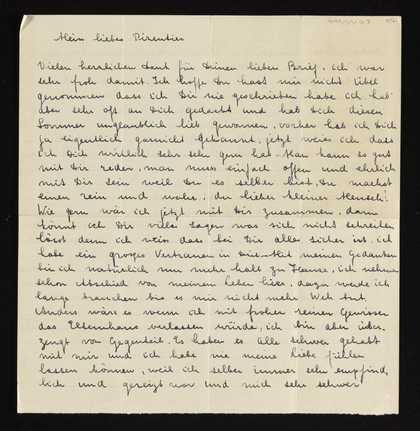 Mein liebes Birentier
Vielen herzlichen Dank für Deinen lieben Brief, ich war
sehr froh damit. Ich hoffe Du hast mir nicht übel
genommen dass ich Dir nie geschrieben habe ich hab'
aber sehr oft an Dich gedacht und hab Dich diesen
Sommer unglaublich lieb gewonnen, vorher hab ich Dich
ja eigentlich garnicht gekannt, jetzt weiss ich dass
ich Dich wirklich sehr sehr gern hab. Man kann so gut
mit Dir reden, man muss einfach offen und ehrlich
mit Dir sein weil Du es selber bist, Du machst
einen rein und wahr, du lieber kleiner Mensch!
Wie gern wär ich jetzt mit Dir zusammen, dann
könnt ich Dir vieles sagen was sich nicht schreiben
lässt denn ich weiss dass bei Dir alles sicher ist. ich
habe ein grosses Vertrauen in Dir. Mit meinen Gedanken
bin ich natürlich nur mehr halb zu Hause, ich nehme
schon Abschied von meinem Leben hier, dazu werde ich
lange brauchen bis es mir nicht mehr Weh tut.
Anders wäre es wenn ich mit frohem reinen Gewissen
das Elternhaus verlassen würde, ich bin aber über-
zeugt von Gegenteil. Es haben es Alle schwer gehabt
mit mir und ich habe nie meine Liebe fühlen
lassen können, weil ich selber immer sehr empfind-
lich und gereizt war und mich sehr schwer